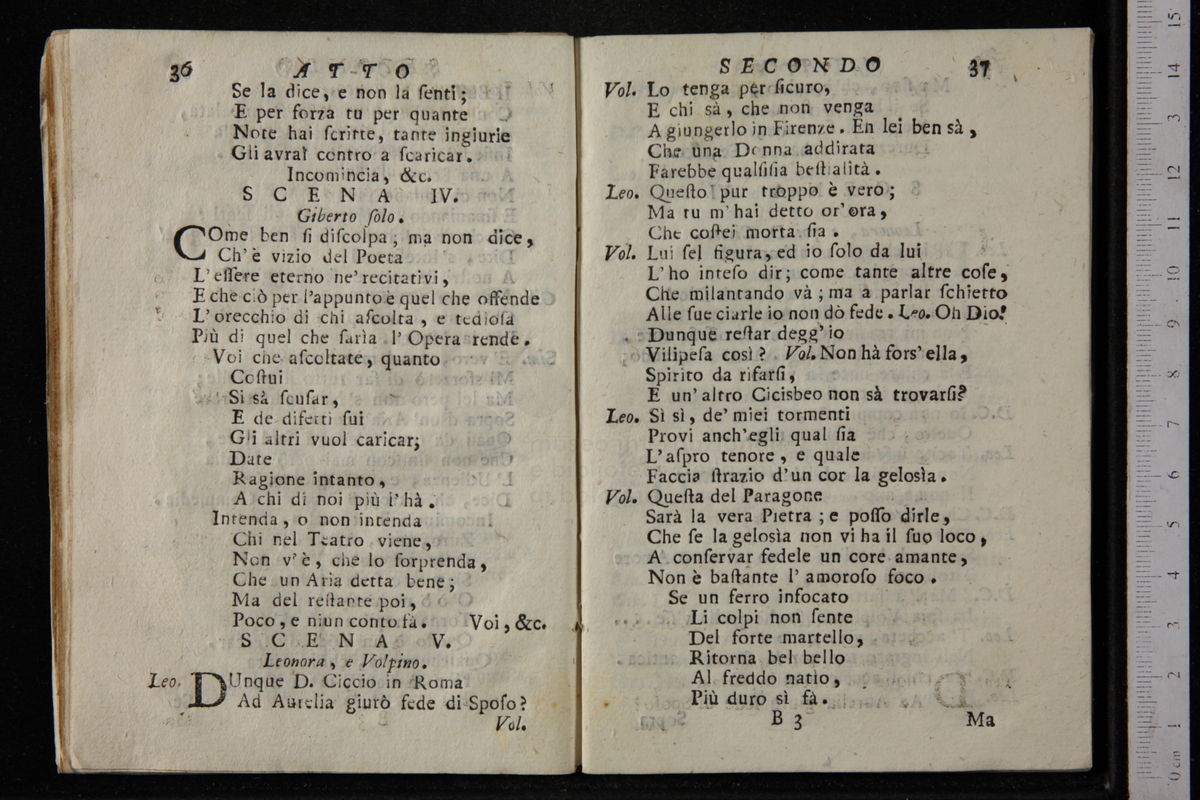 36 ATTO
Se la dice, e non la ſenti;
E per forza tu per quante
Note hai ſcritte, tante ingiurie
Gli avrai contro a ſcaricar.
Incomincia, &c.
SCENA IV.
Giberto ſolo.
COme ben ſi diſcolpa; ma non dice,
Ch' è vizio del Poeta
L'eſſere eterno ne' recitativi,
E che ciò per l'appunto è quel che offende
L'orecchio di chi aſcolta, e tedioſa
Più di quel che ſarìa l'Opera rende.
Voi che aſcoltate, quanto
Coſtui
Si sà ſcuſar,
E de difetti ſui
Gli altri vuol caricar;
Date
Ragione intanto,
A chi di noi più l'hà.
Intenda, o non intenda
Chi nel Teatro viene,
Non v'è, che lo ſorprenda,
Che un Aria detta bene;
Ma del reſtante poi,
Poco, e niun conto fà. Voi, &c.
SCENA V.
Leonora, e Volpino.
Leo. DUnque D. Ciccio in Roma
Ad Aurelia giurò fede di Spoſo?
Vol.
SECONDO 37
Vol. Lo tenga per ſicuro,
E chi sà, che non venga
A giungerlo in Firenze. En lei ben sà,
Che una Donna addirata
Farebbe qualſiſia beſtialità.
Leo. Queſto pur troppo è vero;
Ma tu m'hai detto or'ora,
Che coſtei morta ſia.
Vol. Lui ſel figura, ed io ſolo da lui
L'ho inteſo dir; come tante altre coſe,
Che milantando và; ma a parlar ſchietto
Alle ſue ciarle io non dò fede. Leo. Oh Dio!
Dunque reſtar degg' io
Vilipeſa così? Vol. Non hà fors' ella,
Spirito da rifarſi,
E un'altro Cicisbeo non sà trovarſi?
Leo. Sì sì, de' miei tormenti
Provi anch'egli qual ſia
L'aſpro tenore, e quale
Faccia ſtrazio d'un cor la gelosìa.
Vol. Queſta del Paragone
Sarà la vera Pietra; e poſſo dirle,
Che ſe la gelosìa non vi ha il ſuo loco,
A conſervar fedele un core amante,
Non è baſtante l'amoroſo foco.
Se un ferro infocato
Li colpi non ſente
Del forte martello,
Ritorna bel bello
Al freddo natìo,
Più duro sì fà.
B 3 Ma